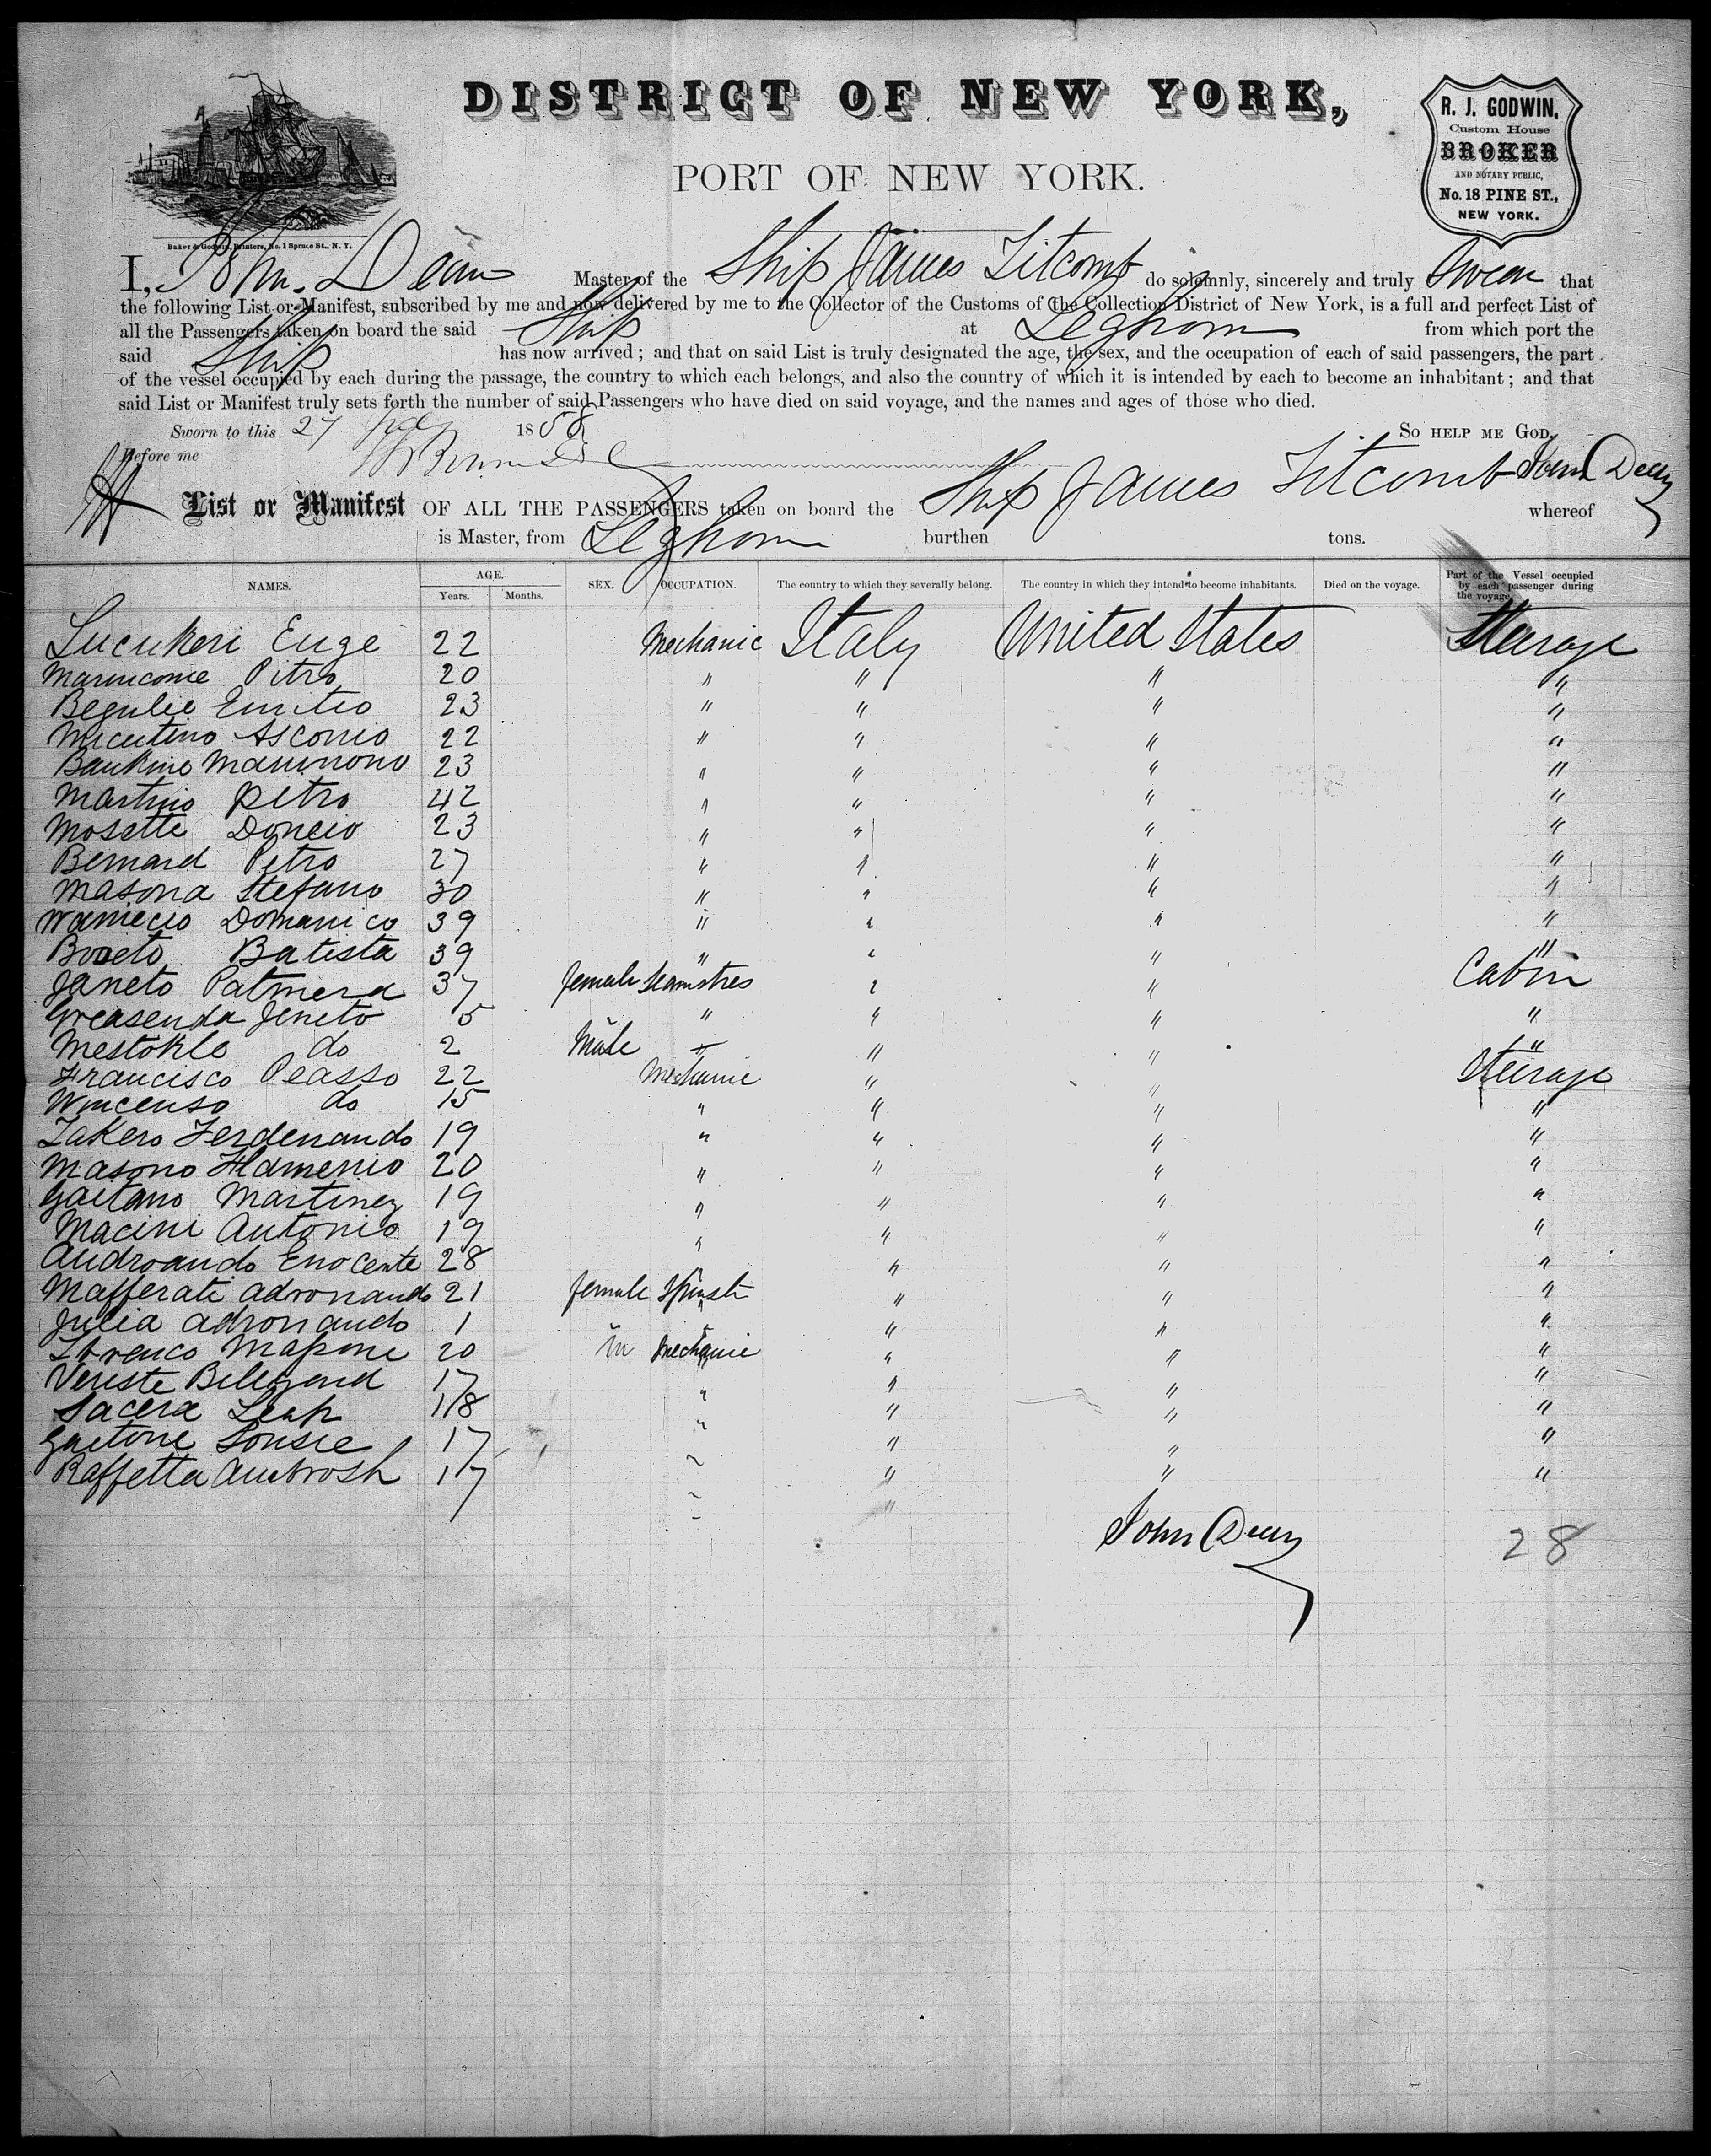 DISTRICT OF NEW YORK,
PORT OF NEW YORK.
R. J. GODWIN,
Custom House
BROKER
AND NOTARY PUBLIC,
No. 18 PINE ST.,
NEW YORK.
Baker & Godwin, Printers, No. 1 Spruce St., N. Y.
I, John Dean Master of the Ship James Titcomb do solemnly, sincerely and truly Swear that
the following List or Manifest, subscribed by me and now delivered by me to the Collector of the Customs of the Collection District of New York, is a full and perfect List of
all the Passengers taken on board the said Ship at Leghorn from which port the
said Ship has now arrived; and that on said List is truly designated the age, the sex, and the occupation of each of said passengers, the part
of the vessel occupied by each during the passage, the country to which each belongs, and also the country of which it is intended by each to become an inhabitant; and that
said List or Manifest truly sets forth the number of said Passengers who have died on said voyage, and the names and ages of those who died.
Sworn to this 27 1858 SO HELP ME GOD.
Before me
List or Manifest OF ALL THE PASSENGERS taken on board the Ship James Titcomb John Deay whereof
is Master, from Leghorn burthen tons.
NAMES. AGE. Years. Months. SEX. OCCUPATION. The country to which they severally belong. The country in which they intend to become inhabitants. Died on the voyage. Part of the Vessel occupied by each passenger during the voyage.
Lucukeri Euge 22 Mechanic Italy United States Steerage
Marincome Pitro 20 " " " "
Begulie Emitio 23 " " " "
Micutino Asconio 22 " " " "
Baukino Marinono 23 " " " "
Martino Petro 42 " " " "
Mosette Doncio 23 " " " "
Bernard Petro 27 " " " "
Masona Stefano 30 " " " "
Wamecio Domanico 39 " " " "
Boseto Batista 39 " " " "
Janeto Palmera 37 female Seamstres " " Cabin
Greasenda Jeneto 5 " " " "
Mestoklo do 2 Male " " " "
Francisco Peasso 22 Mechanic " " Steerage
Wincenso do 15 " " " "
Zakero Ferdenando 19 " " " "
Masono Flamenio 20 " " " "
Gaetano Martinez 19 " " " "
Macini Antonio 19 " " " "
Androando Enocente 28 " " " "
Mafferati Adronando 21 female Spinst " " "
Julia Adronando 1 " " " "
Lorenco Mapone 20 m Mechanic " " "
Veriste Belegond 17 " " " "
Sacera Leap 18 " " " "
Gaetone Lousie 17 " " " "
Raffetta Ambrosh 17 " " " "
John Deay 28